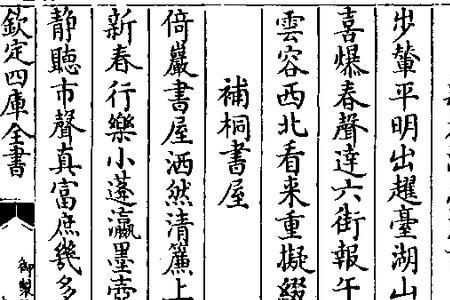 步輦平明出趯臺湖山
喜爆春聲達六街報午
雲容西北看来重擬綴
補桐書屋
倚巖書屋洒然清簾上
新春行樂小蓬瀛墨壺
静聽市聲真富庶幾多
欽定四庫全書
御製